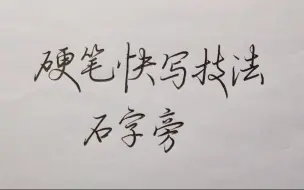 硬笔快写技法
石字旁